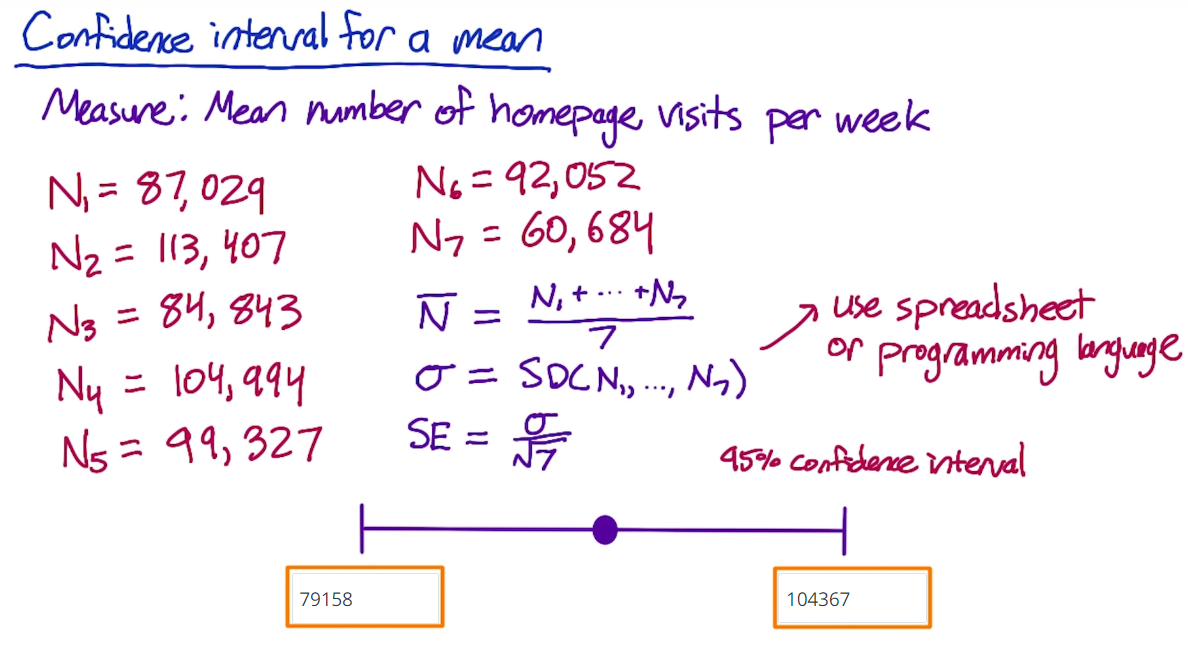 Confidence interval for a mean
Measure: Mean number of homepage visits per week
N₁ = 87,029
N₂ = 113,407
N₃ = 84,843
N₄ = 104,994
N₅ = 99,327
N₆ = 92,052
N₇ = 60,684
N̅ = (N₁ + ... + N₇) / 7
σ = SD(N₁, ..., N₇)
SE = σ/√7
use spreadsheet
or programming language
95% confidence interval
79158
104367